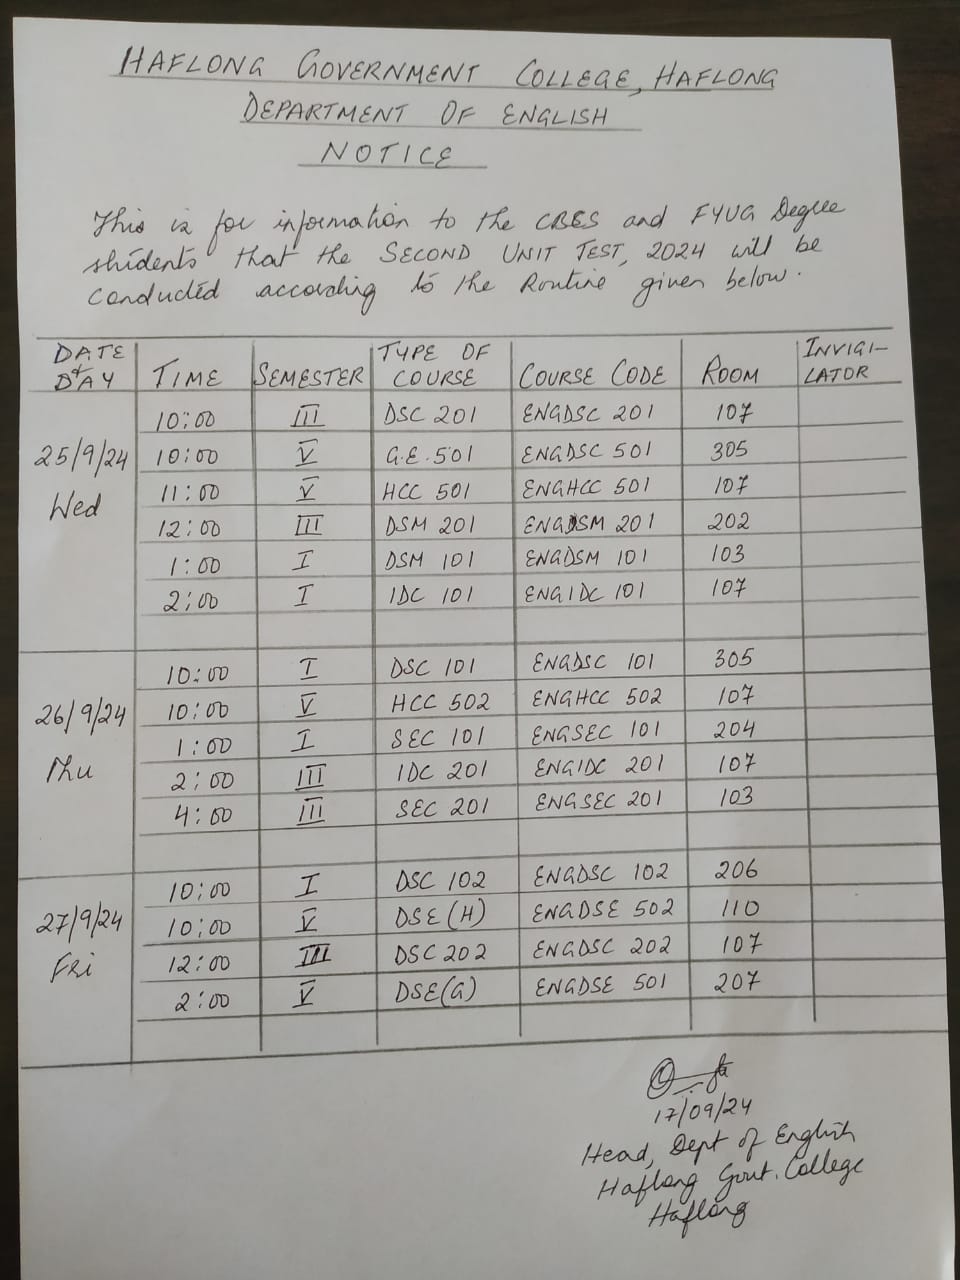 HAFLONG GOVERNMENT COLLEGE, HAFLONG
DEPARTMENT OF ENGLISH
NOTICE
This is for information to the CBCS and FYUG Degree
students that the SECOND UNIT TEST, 2024 will be
conducted according to the Routine given below.
DATE & DAY TIME SEMESTER TYPE OF COURSE COURSE CODE ROOM INVIGI-LATOR
25/9/24 Wed
10:00 III DSC 201 ENGDSC 201 107
10:00 V G.E. 501 ENGDSC 501 305
11:00 V HCC 501 ENGHCC 501 107
12:00 III DSM 201 ENGDSM 201 202
1:00 I DSM 101 ENGDSM 101 103
2:00 I IDC 101 ENGIDC 101 107
26/9/24 Thu
10:00 I DSC 101 ENGDSC 101 305
10:00 V HCC 502 ENGHCC 502 107
1:00 I SEC 101 ENGSEC 101 204
2:00 III IDC 201 ENGIDC 201 107
4:00 III SEC 201 ENGSEC 201 103
27/9/24 Fri
10:00 I DSC 102 ENGDSC 102 206
10:00 V DSE (H) ENGDSE 502 110
12:00 III DSC 202 ENGDSC 202 107
2:00 V DSE(G) ENGDSE 501 207
17/09/24
Head, Dept of English
Haflong Govt. College
Haflong